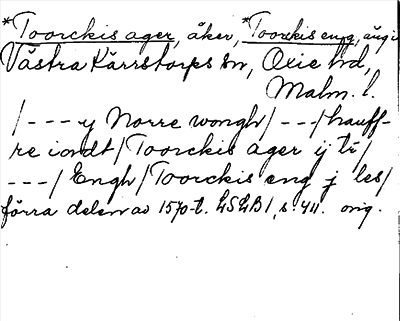 *Toorckis ager, åker, *Toorckis eng, äng i
Västra Kärrstorps sn, Oxie hd,
Malm. l.
/--- y Norre wongh/---/hauff-
re iordt/Toorckis ager ij tr/
---/Engh/Toorckis eng j les/
förra delen av 1570-t. LSLB1, s. 411. orig.